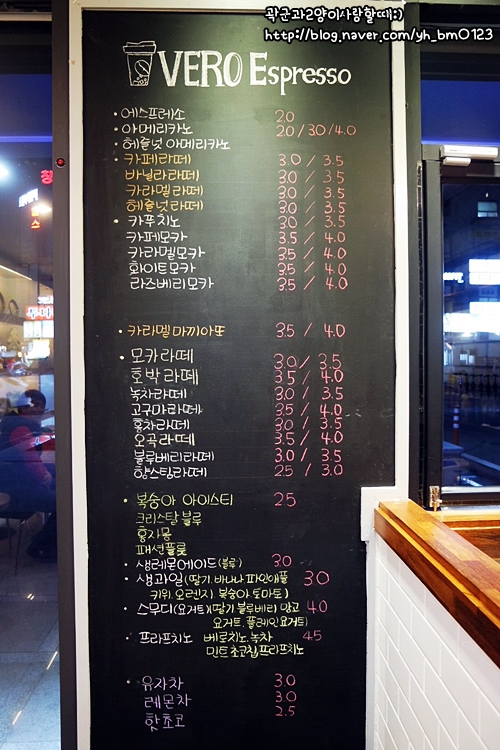 곽군과2양이사랑할때:)
http://blog.naver.com/yh_bm0123
VERO Espresso
· 에스프레소 2.0
· 아메리카노 2.0/3.0/4.0
헤즐넛 아메리카노
· 카페라떼 3.0 / 3.5
바닐라라떼 3.0 / 3.5
카라멜라떼 3.0 / 3.5
헤즐넛라떼 3.0 / 3.5
· 카푸치노 3.0 / 3.5
카페모카 3.5 / 4.0
카라멜모카 3.5 / 4.0
화이트모카 3.5 / 4.0
라즈베리모카 3.5 / 4.0
· 카라멜마끼아또 3.5 / 4.0
· 모카라떼 3.0 / 3.5
호박라떼 3.5 / 4.0
녹차라떼 3.0 / 3.5
고구마라떼 3.5 / 4.0
홍차라떼 3.0 / 3.5
오곡라떼 3.5 / 4.0
블루베리라떼 3.0 / 3.5
핫스팀라떼 2.5 / 3.0
· 복숭아 아이스티 2.5
크리스탈 블루
홍자몽
패션플룻
· 생레몬에이드(블루) 3.0
· 생과일(딸기.바나나.파인애플 3.0
키위.오렌지.복숭아.토마토)
· 스무디(요거트)(딸기.블루베리.망고 4.0
요거트.플레인요거트)
· 프라프치노 베로치노.녹차 4.5
민트초코칩프라프치노
· 유자차 3.0
레몬차 3.0
핫초코 2.5